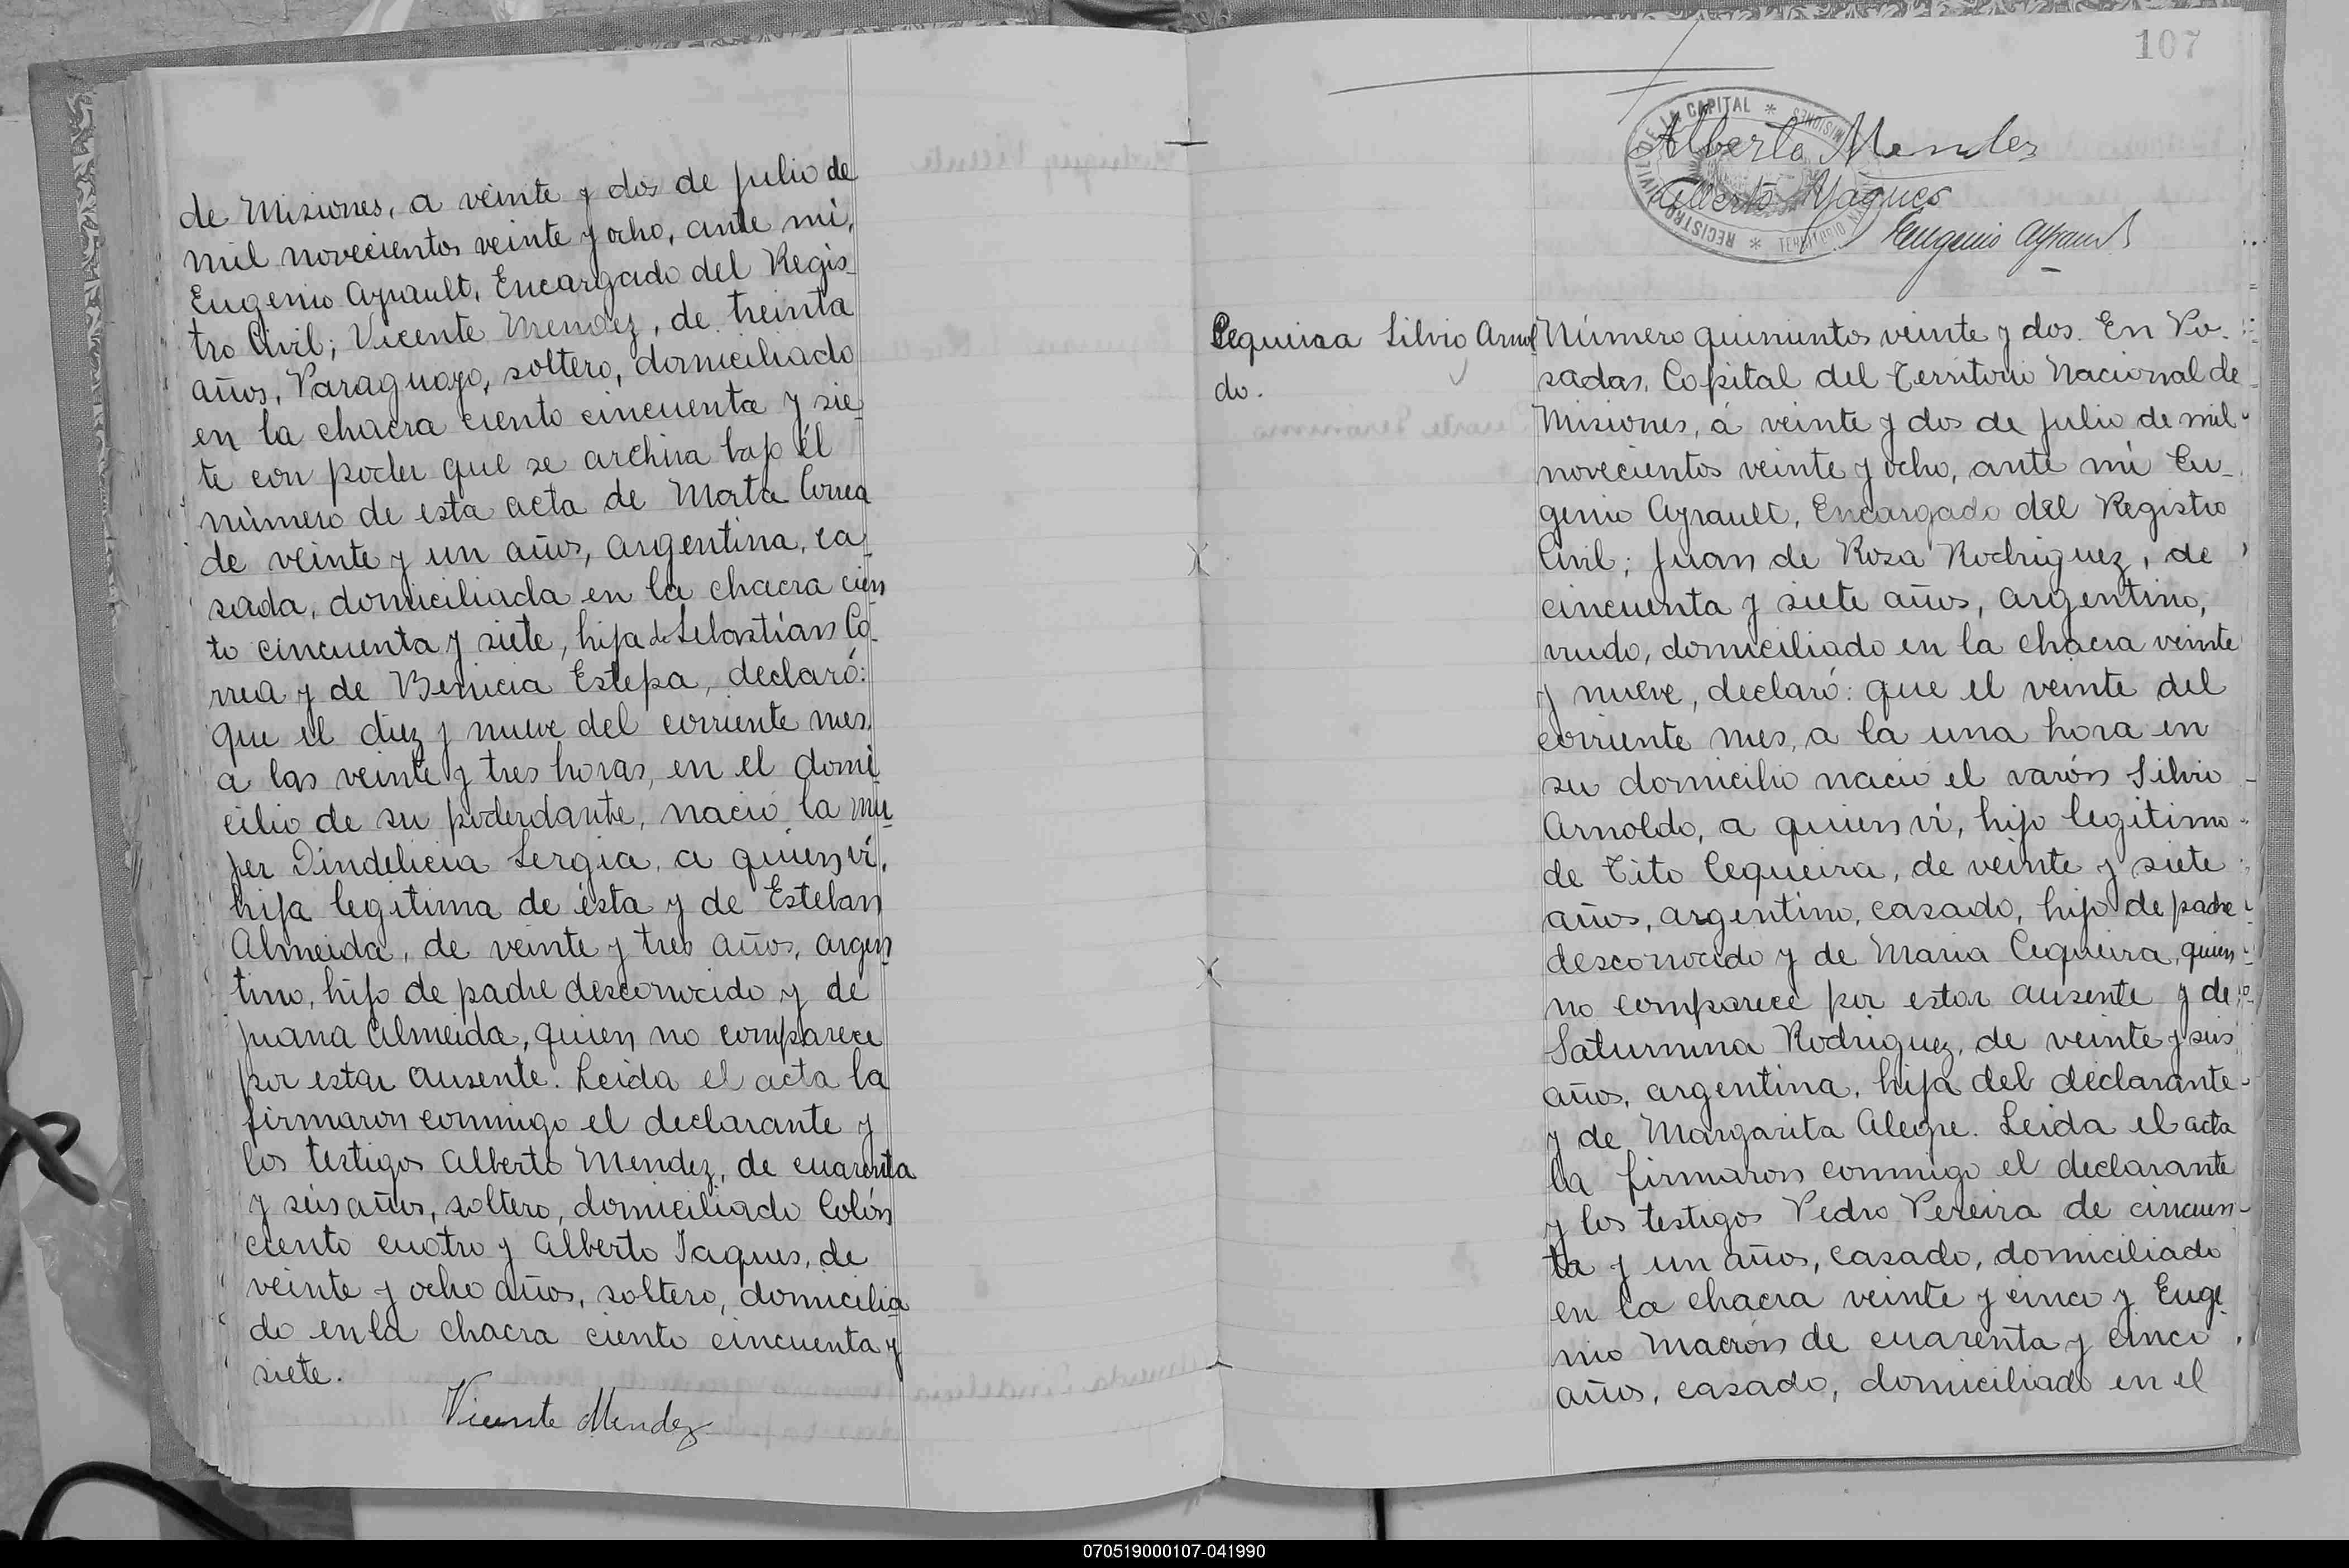 de Misiones, a veinte y dos de julio de
mil novecientos veinte y ocho, ante mi,
Eugenio Ayrault, Encargado del Regis-
tro Civil; Vicente Mendez, de treinta
años, Paraguayo, soltero, domiciliado
en la chacra ciento cincuenta y sie-
te con poder que se archiva bajo el
número de esta acta de Marta Correa
de veinte y un años, argentina, ca-
sada, domiciliada en la chacra cien-
to cincuenta y siete, hija de Sebastian Co-
rrea y de Benicia Estepa, declaró:
que el diez y nueve del corriente mes,
a las veinte y tres horas, en el domi-
cilio de su poderdante, nació la mu-
jer Dindelicia Sergia, a quien vi,
hija legitima de ésta y de Esteban
Almeida, de veinte y tres años, argen-
tino, hijo de padre desconocido y de
Juana Almeida, quien no comparece
por estar ausente. Leida el acta la
firmaron conmigo el declarante y
los testigos Alberto Mendez, de cuarenta
y seis años, soltero, domiciliado Colón
ciento cuatro y Alberto Jaques, de
veinte y ocho años, soltero, domicilia-
do en la chacra ciento cincuenta y
siete.
Vicente Mendez
107
REGISTRO CIVIL DE LA CAPITAL * MISIONES * TERRITORIO
Alberto Mendez
Alberto Yaques
Eugenio Ayrault
Cequeira Silvio Arnol
do.
Número quinientos veinte y dos. En Po-
sadas, Capital del Territorio Nacional de
Misiones, á veinte y dos de julio de mil
novecientos veinte y ocho, ante mi Eu-
genio Ayrault, Encargado del Registro
Civil; Juan de Rosa Rodriguez, de
cincuenta y siete años, argentino,
viudo, domiciliado en la chacra veinte
y nueve, declaró: que el veinte del
corriente mes, a la una hora en
su domicilio nació el varón Silvio
Arnoldo, a quien ví, hijo legitimo
de Tito Cequeira, de veinte y siete
años, argentino, casado, hijo de padre
desconocido y de Maria Cequeira, quien
no comparece por estar ausente y de
Saturnina Rodriguez, de veinte y seis
años, argentina, hija del declarante
y de Margarita Alegre. Leida el acta
la firmaron conmigo el declarante
y los testigos Pedro Pereira de cincuen-
ta y un años, casado, domiciliado
en la chacra veinte y cinco y Euge-
nio Macrón de cuarenta y cinco
años, casado, domiciliado en el
070519000107-041990